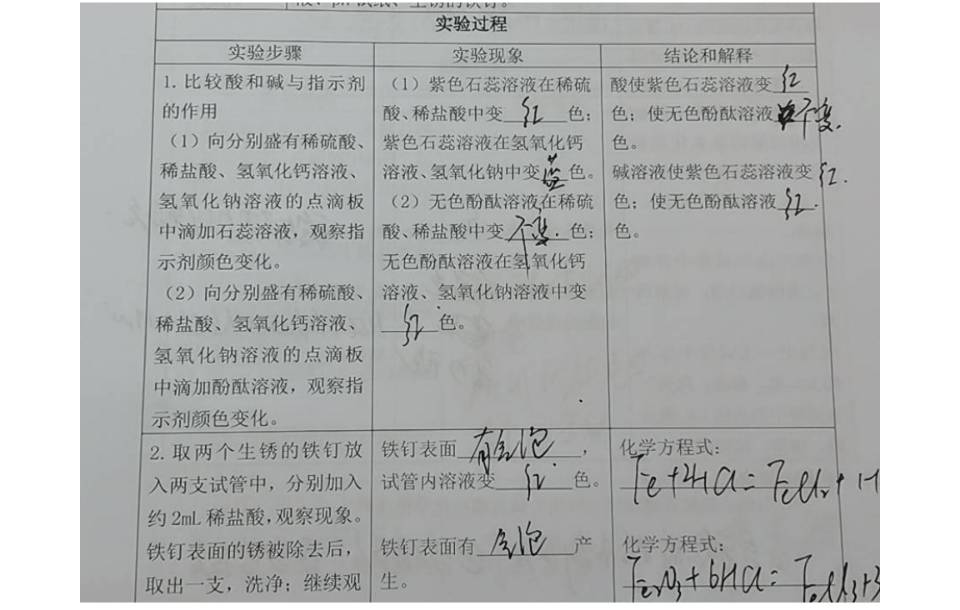 实验过程
实验步骤 实验现象 结论和解释
1. 比较酸和碱与指示剂
的作用
（1）向分别盛有稀硫酸、
稀盐酸、氢氧化钙溶液、
氢氧化钠溶液的点滴板
中滴加石蕊溶液，观察指
示剂颜色变化。
（2）向分别盛有稀硫酸、
稀盐酸、氢氧化钙溶液、
氢氧化钠溶液的点滴板
中滴加酚酞溶液，观察指
示剂颜色变化。
（1）紫色石蕊溶液在稀硫
酸、稀盐酸中变 红 色；
紫色石蕊溶液在氢氧化钙
溶液、氢氧化钠中变 蓝 色。
（2）无色酚酞溶液在稀硫
酸、稀盐酸中变 不变. 色；
无色酚酞溶液在氢氧化钙
溶液、氢氧化钠溶液中变
红 色。
酸使紫色石蕊溶液变 红
色；使无色酚酞溶液 不变.
色。
碱溶液使紫色石蕊溶液变 红.
色；使无色酚酞溶液 红.
色。
2. 取两个生锈的铁钉放
入两支试管中，分别加入
约2mL稀盐酸，观察现象。
铁钉表面的锈被除去后，
取出一支，洗净；继续观
铁钉表面 有气泡 ，
试管内溶液变 红 色。
铁钉表面有 气泡 产
生。
化学方程式：
Fe+2HCl=FeCl₂+H
化学方程式：
Fe₂O₃+6HCl=FeCl₃+3